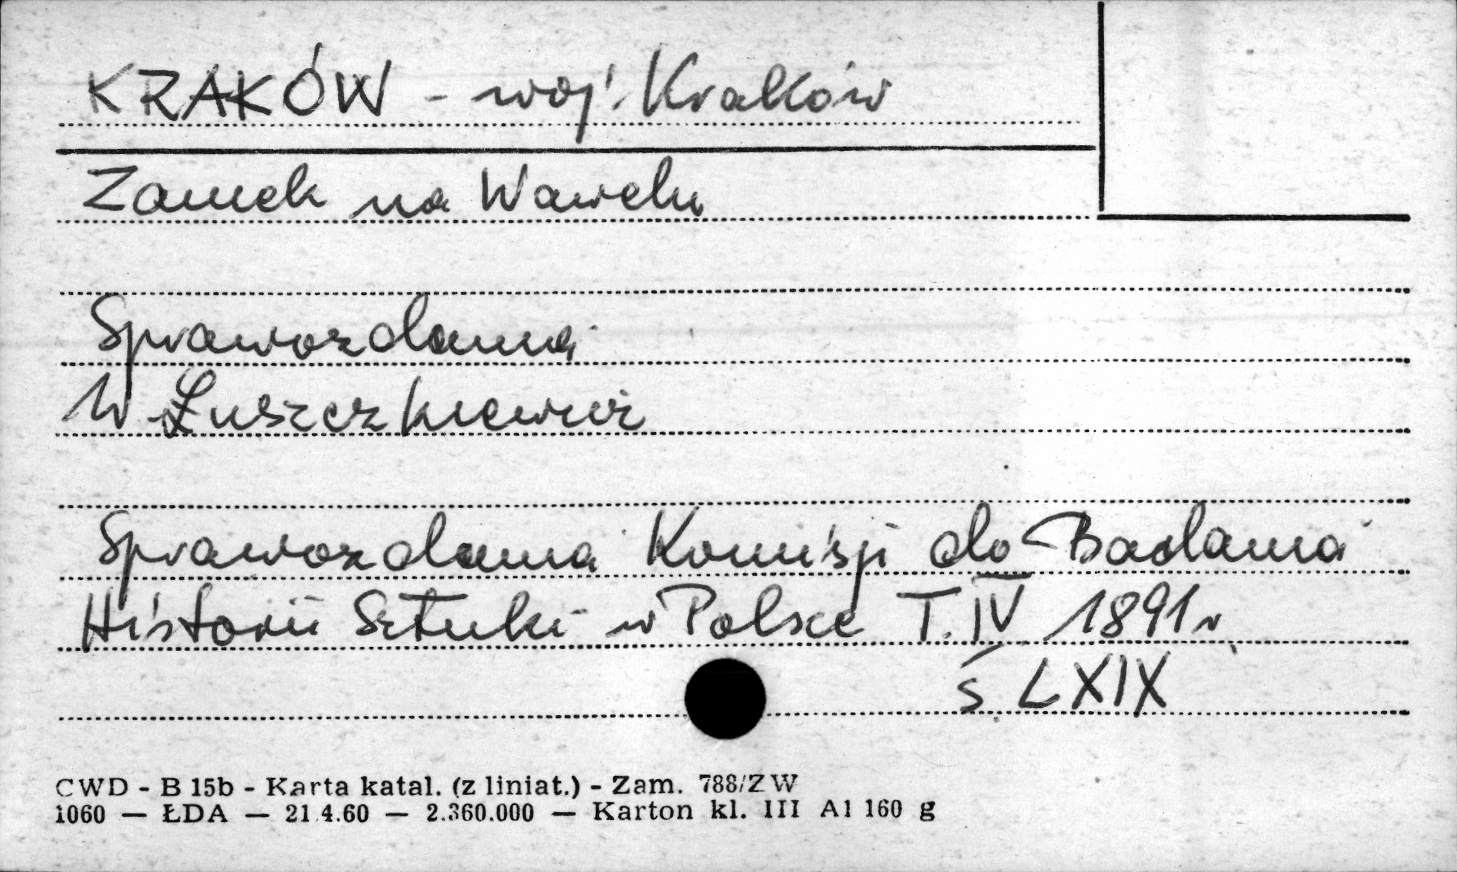 KRAKÓW - woj. Kraków
Zamek na Wawelu
Sprawozdania
W Łuszczkiewicz
Sprawozdania Komisji do Badania
Historii Sztuki w Polsce T. IV 1891 r
s. LXIX
CWD - B 15b - Karta katal. (z liniat.) - Zam. 788/ZW
1060 — ŁDA — 21.4.60 — 2.360.000 — Karton kl. III A1 160 g